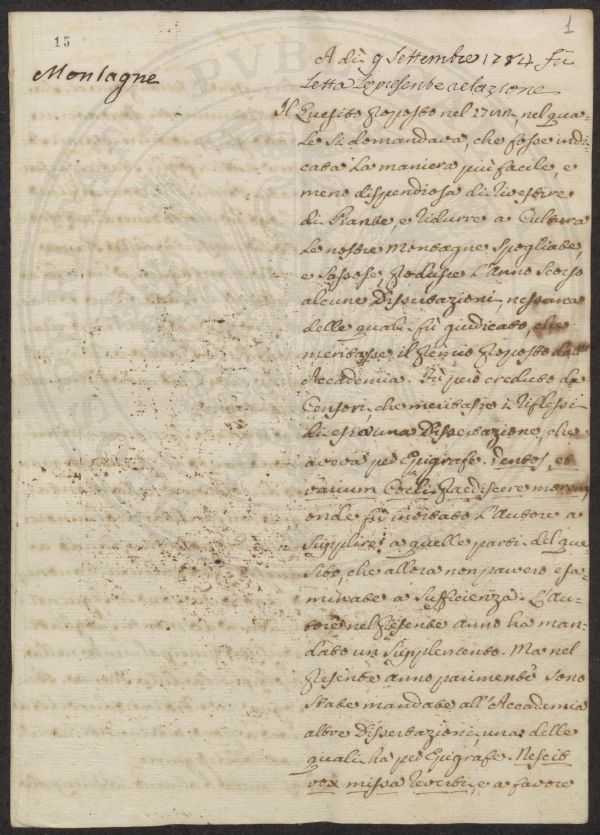 15
1
Montagne
A dì 9 Settembre 1784 fù
letta la presente relazione
Il Quesito proposto nel 1782, nel qua-
le si domandava, che fosse indi-
cata la maniera più facile, e
meno dispendiosa di rivestire
di Piante, e ridurre a Cultura
le nostre Montagne spogliate,
e sassose produsse l'Anno scorso
alcune Dissertazioni, nessuna
delle quali fù giudicato, che
meritasse il Premio proposto dall'
Accademia. Fù però creduto da
Censori, che meritasse i riflessi
di essa una Dissertazione, che
aveva per Epigrafe. Ventos, et
varium Coeli praediscere morem,
onde fù invitato l'Autore a
supplire a quelle parti del que-
sito, che allora non parvero esa-
minate a sufficienza. L'Au-
tore nel presente anno ha man-
dato un Supplemento. Ma nel
presente anno parimente sono
state mandate all'Accademia
altre Dissertazioni, una delle
quali ha per Epigrafe. Nescit
vox missa reverti, e a favore